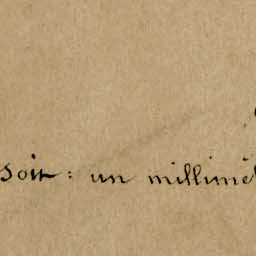 soit : un millimè